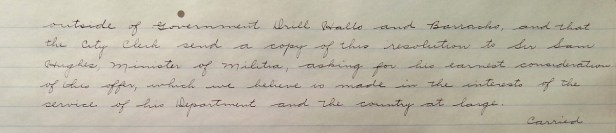 outside of Government Drill Halls and Barracks, and that
the City Clerk send a copy of this resolution to Sir Sam
Hughes, Minister of Militia, asking for his earnest consideration
of this offer, which we believe is made in the interests of the
service of his Department and the country at large.
Carried